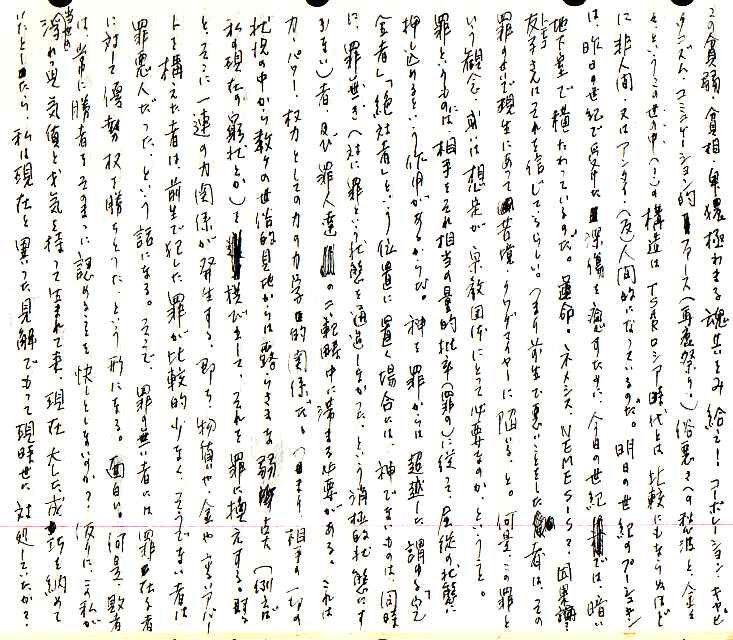 この貧弱・貧相・卑猥極わまる魂共をみ給え！コーポレーション・キャピ
タリズム、コミュニケーション的ファース（再農祭り！）俗悪さへの秋波と金を
というこの世の中（？）の構造はTSARロシア時代とは比較にもならぬほど
に非人間・又はアンタイ・（反）人間的になっているのだ。明日の世紀のプーシキン
は、昨日の世紀で受けた深傷を癒すために、今日の世紀では、暗い
地下室で横たわっているのだ。運命。ネメシス NEMESIS？、因果
友子さんはそれを信じているらしい。つまり前生で悪いことをした者は、その
罪のせいで現生にあって苦境・クワグマイヤーに陥いる、と。何是、この罪と
いう観念、或は想定が宗教団体にとって必要なのか、ということ。
罪というものには、相手をそれ相当の量的比率（罪の）に従って、屈従の状態に
押し込めるという作用があるからだ。神を罪からは超越した、謂わる「完
全者」「絶対者」という位置に置く場合には、神でないものは、同時
に、罪無き（へ対に罪という状態を通過しなかった、という消極的状態にす
ぎない）者及び罪人達の二範疇中に填まる必要がある。これは
力・パワー・权力としての力の力学的関係だ。（つまり、相手の一つの
状況の中から数々の世俗的見地からは露らさまな弱点（例えば
私の現在の窮状とか）を横び出して、それを罪に換元する。
と、そこに一連の力関係が発生する。即ち、物質いや、金や、高いアパー
トを構えた者は、前生で犯した罪が比較的少なく、そうでない者は
罪悪人だった、という話になる。そこで、罪の無い者には罪在る者
に対して優勢权を勝ちとった、という形になる。面白い。何是、敗者
は、常に勝者をそのまゝに認めることを快しとしないのか？仮りに、この私が
当世の浮れっ児気質と才気を持って生まれて来、現在大した成巧を納めて
いたとしたら、私は現在と異った見解でもって現時世に対処していたか？